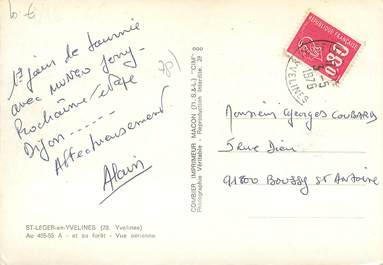 1er jour de tournée
avec MUNGO Jerry.
Prochaine étape
Dijon......
Affectueusement
Alain
ST-LEGER-en-YVELINES (78. Yvelines)
Au 455-55 A - et sa forêt - Vue aérienne
COMBIER IMPRIMEUR MACON (71. S.&-L.) "CIM"
Photographie Véritable - Reproduction Interdite.
RÉPUBLIQUE FRANÇAISE
0,80
YVELINES
1976
Monsieur Georges COUBARD
5 Rue Dieu
91800 BOUSSY ST Antoine